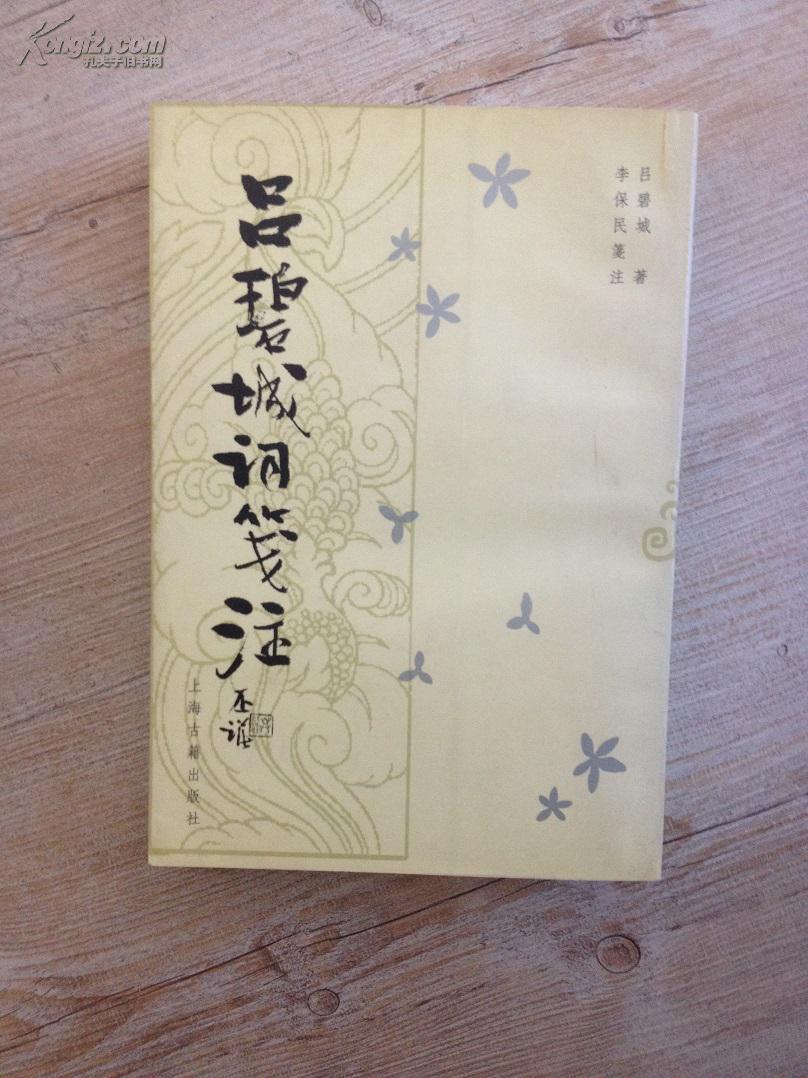 Kongfz.com
孔夫子旧书网
吕碧城 著
李保民笺注
吕碧城词笺注
上海古籍出版社